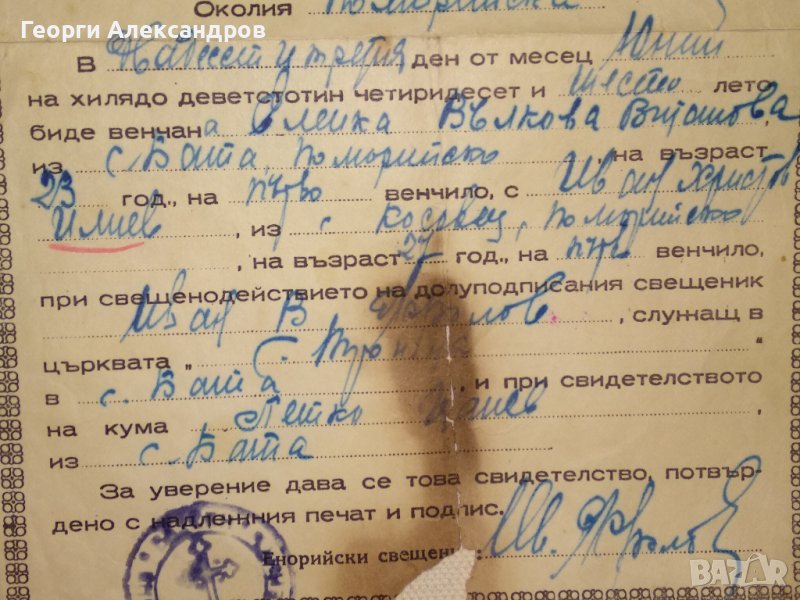 Георги Александров
Околия Поморийска
В Двадесет и третия ден от месец Юний
на хилядо деветстотин четиридесет и шесто лето
биде венчана Еленка Вълкова
из с. Бата, Поморийско, на възраст
23 год., на първо венчило, с Иван Христов
Илиев, из с. Косовец, Поморийско
, на възраст 27 год., на първо венчило,
при свещенодействието на долуподписания свещеник
Иван В. , служащ в
църквата „С. Троица“
в с. Бата, и при свидетелството
на кума Петко Цанев,
из с. Бата
За уверение дава се това свидетелство, потвър-
дено с надлежния печат и подпис.
Енорийски свещеник: Ив.
BAZAR